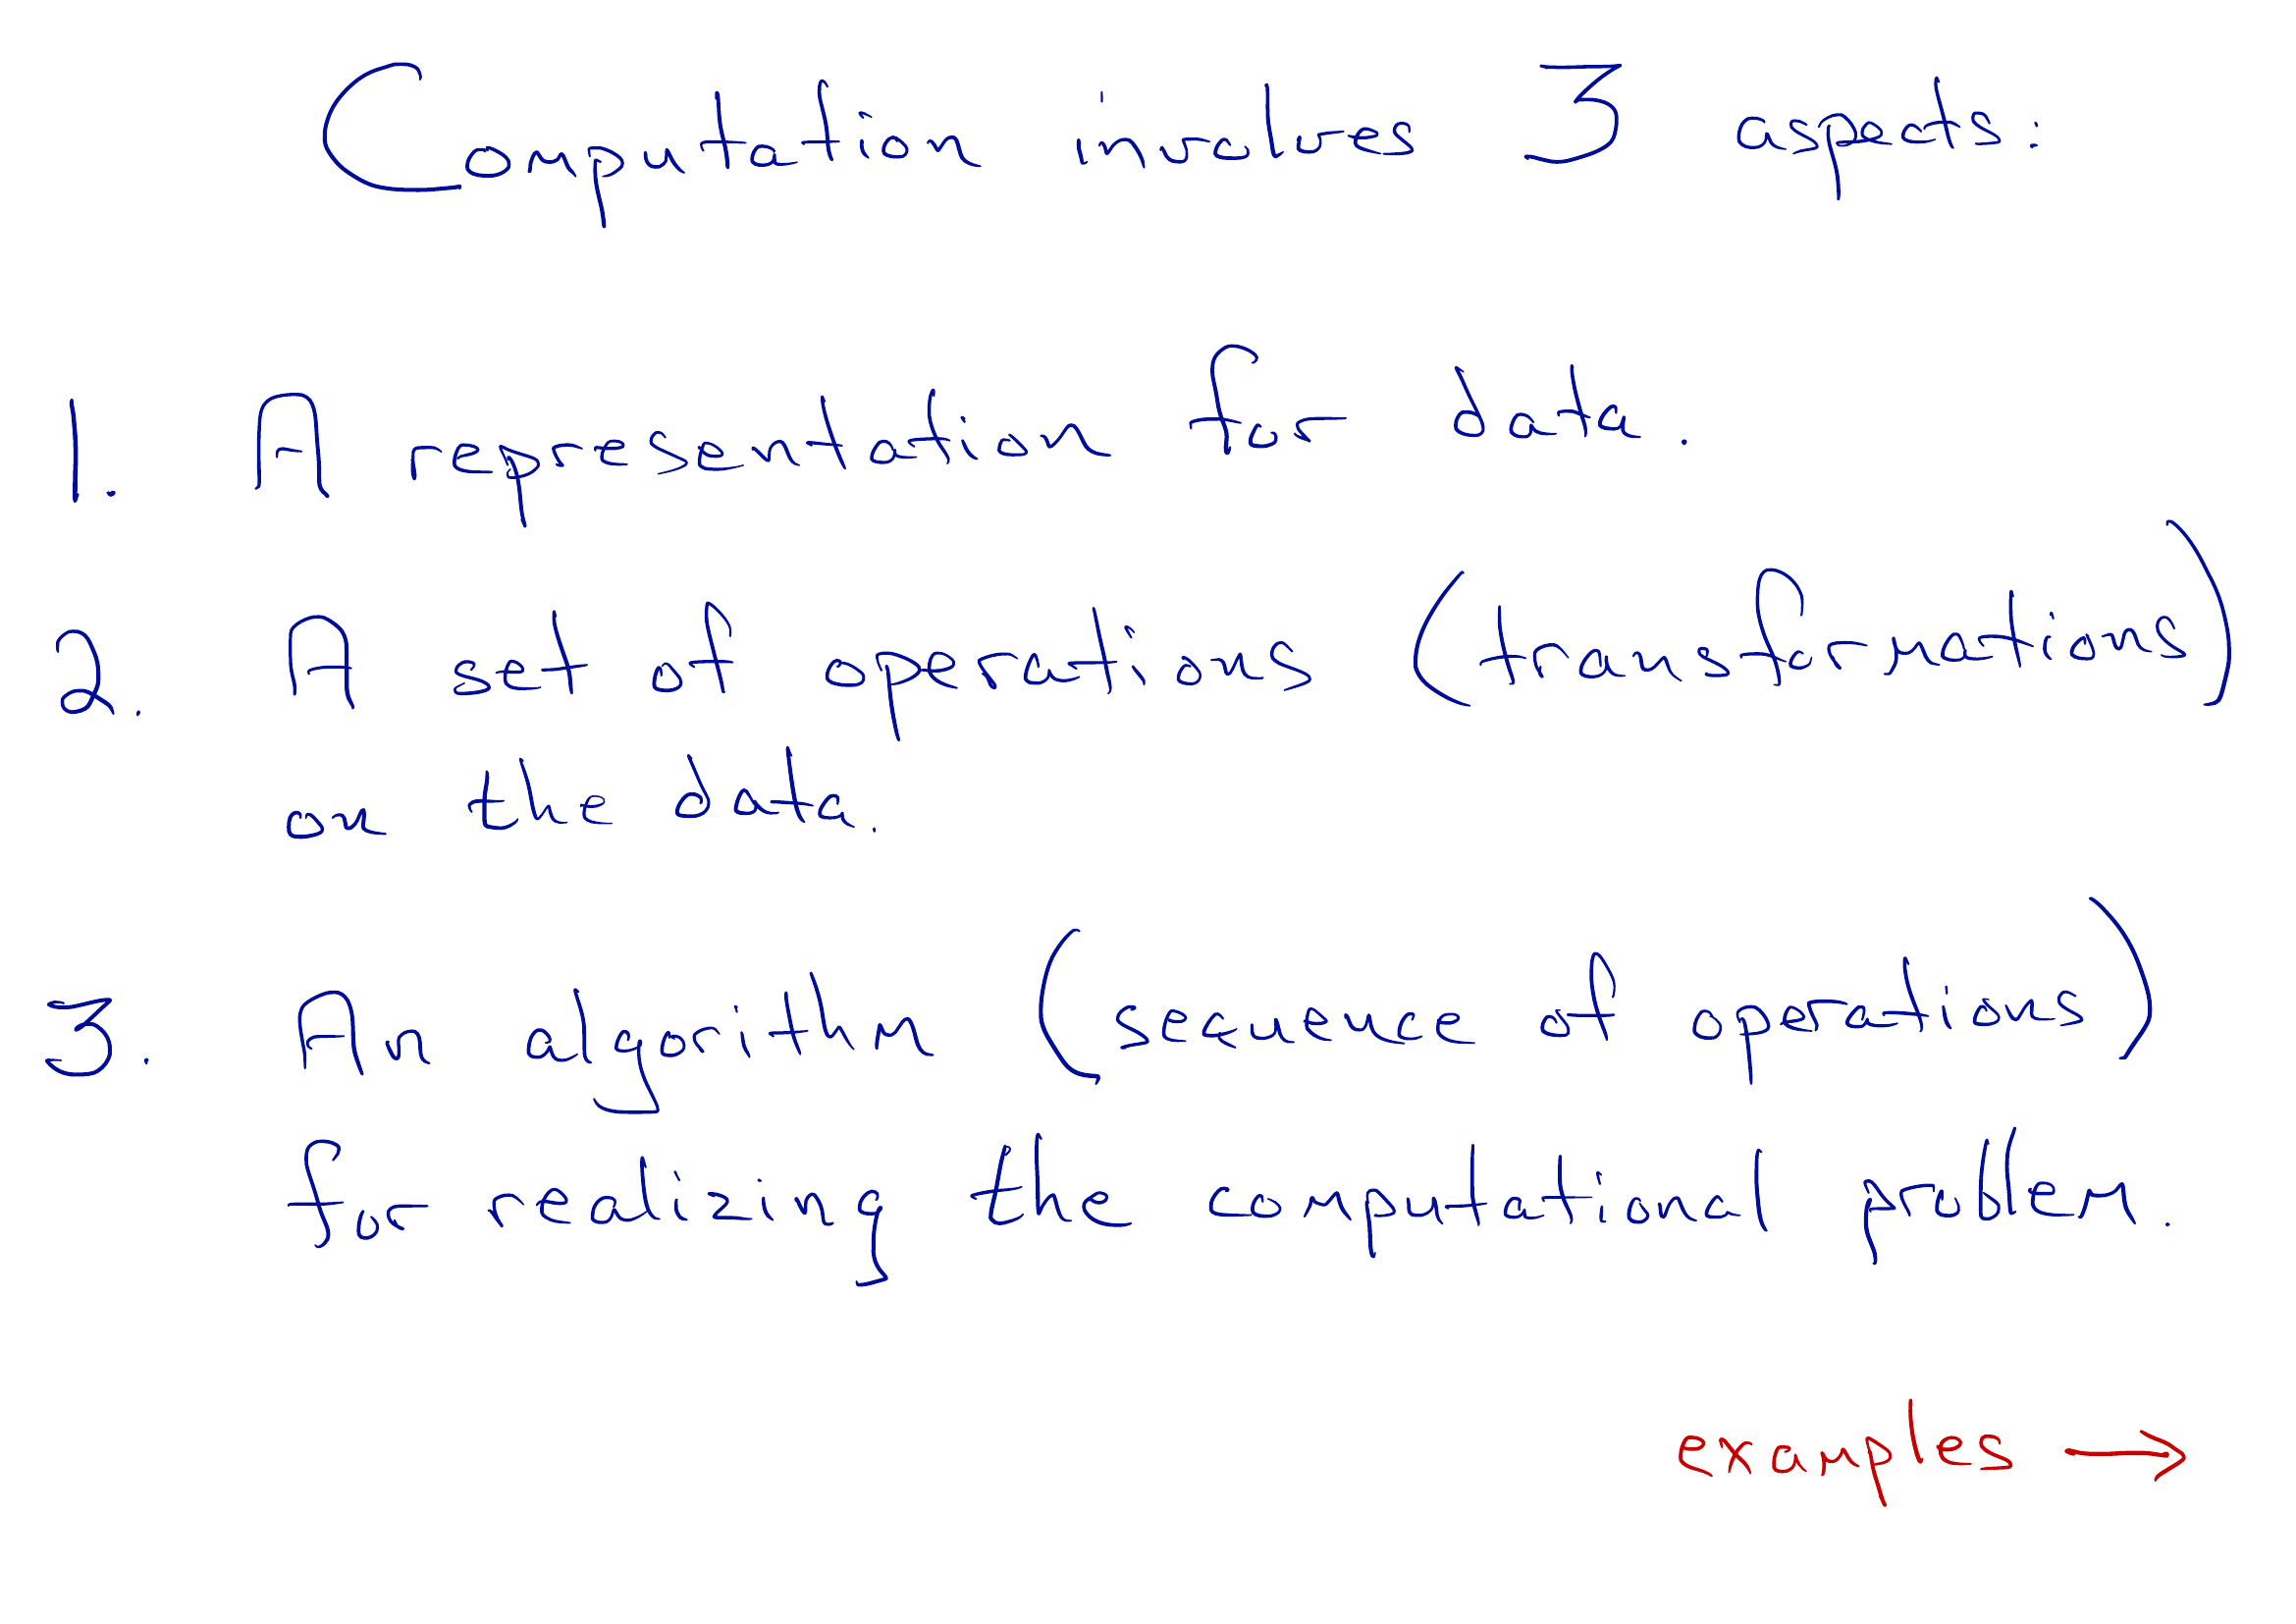 Computation involves 3 aspects:
1. A representation for data.
2. A set of operations (transformations)
on the data.
3. An algorithm (sequence of operations)
for realizing the computational problem.
examples →